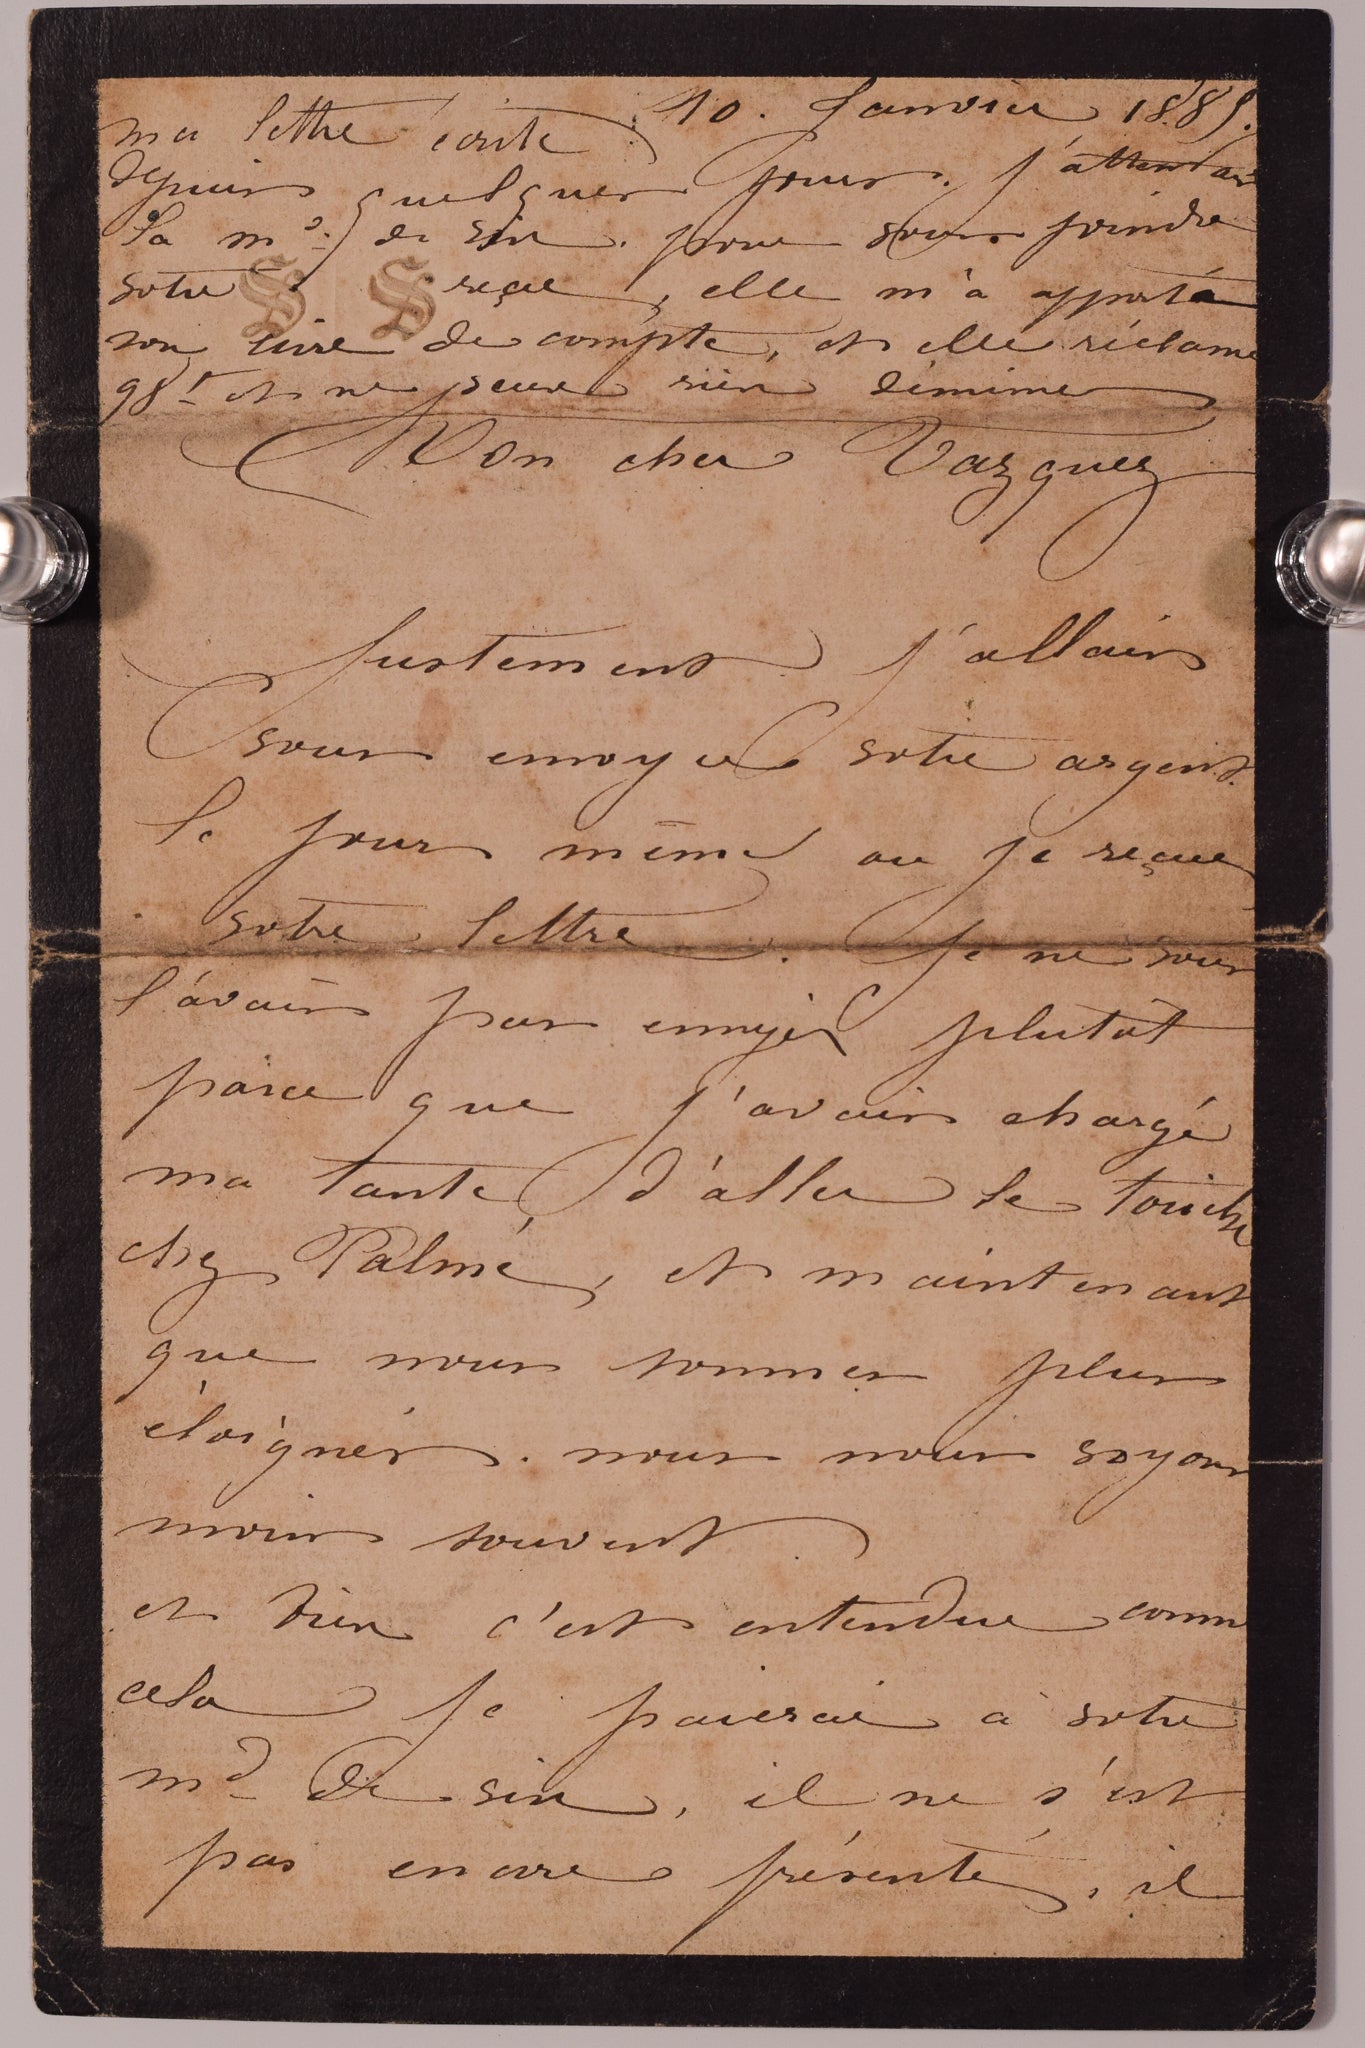 10. Janvier 1885.
ma lettre écrite
depuis quelques jours. j'attendais
la md. de vin. pour vous joindre
votre reçue, elle m'a apporté
son livre de compte, et elle réclame
98f et ne veux rien diminuer
Mon cher Vazquez
Justement j'allais
vous envoyer votre argent.
le jour même ou je reçue
votre lettre. Je ne vous
l'avais pas envoyé plutot
parce que j'avais chargé
ma tante, d'aller le toucher
chez Palmé, et maintenant
que nous sommes plus
éloignés. nous nous voyons
moins souvent
et bien c'est entendue comme
cela je paierai à votre
md de vin, il ne s'est
pas encore présenté, il
S S